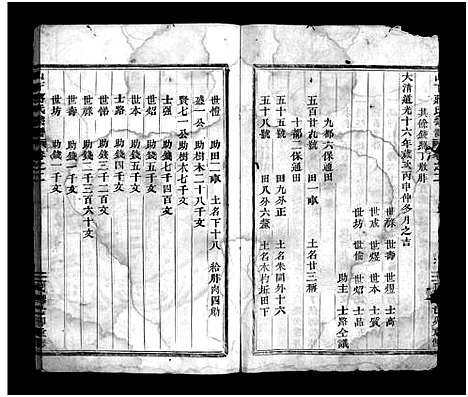 其餘錢照丁散胙
大清道光十六年歲次丙申仲冬月之吉
世祿 世壽 世煜 士高
世成 世煜 士本 士質
世坊 世倫 世炤 士品
助主 士路仝議
九都六保通田
五百廿九號 田一畝 土名廿三畝
十都二保通田
五十號 田九分正 土名朱閣外十六
五十八號 田八分六釐 土名木杓坵田下
世愷 助田一畝 土名下十八 給胙肉四觔
盛一公 助樹木二十八千文
賢七一公助樹木七千文
士強 助錢五千文
世炤 助錢七千四百文
世本 助錢四千文
士路 助錢四千文
世祿 助錢二千三百六十文
世壽 助錢二千三百文
世坊 助錢二千一百文